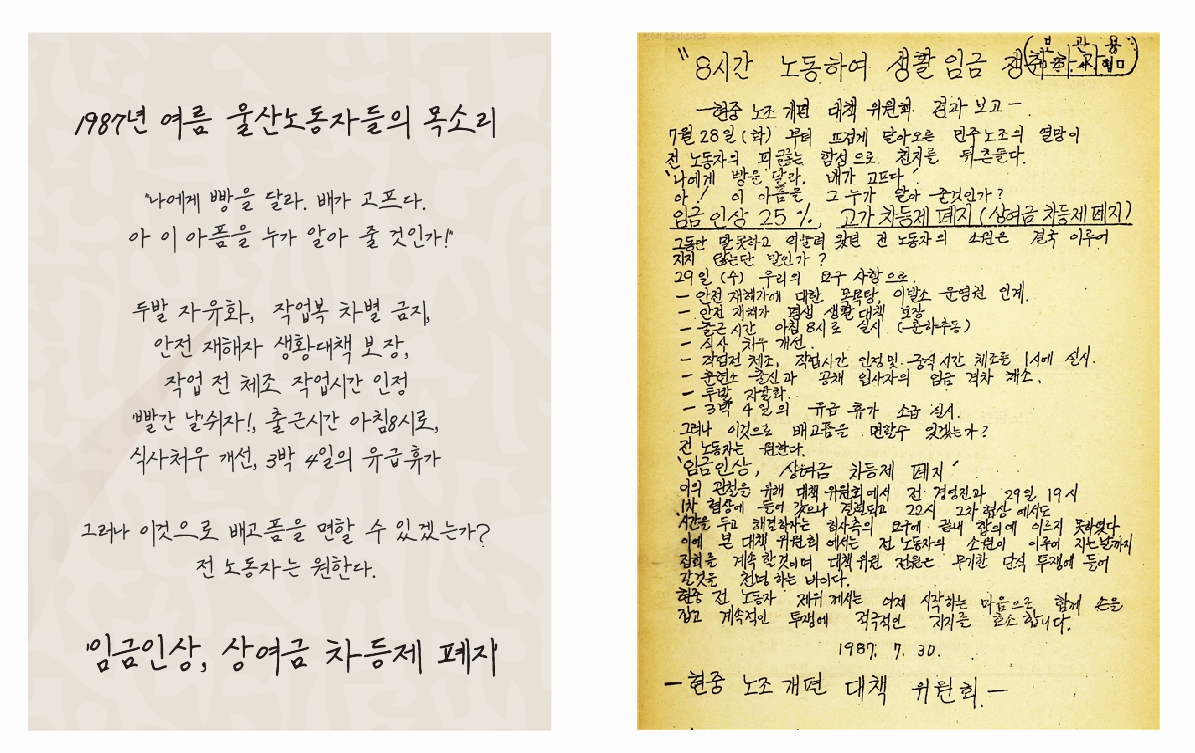 1987년 여름 울산노동자들의 목소리
"나에게 빵을 달라. 배가 고프다.
아 이 아픔을 누가 알아 줄 것인가!"
두발 자유화, 작업복 차별 금지,
안전 재해자 생활대책 보장,
작업 전 체조 작업시간 인정
'빨간 날쉬자!', 출근시간 아침8시로,
식사처우 개선, 3박 4일의 유급휴가
그러나 이것으로 배고픔을 면할 수 있겠는가?
전 노동자는 원한다.
'임금인상, 상여금 차등제 폐지'
보관용
"8시간 노동하여 생활임금 쟁취하자"
—현중 노조 개편 대책 위원회 경과 보고—
7월 28일 (화) 부터 뜨겁게 달아오른 민주노조의 열망이
전 노동자의 피끓는 함성으로 천지를 뒤흔들다.
"나에게 빵을 달라. 배가 고프다"
아! 이 아픔을 그 누가 알아 줄것인가?
임금인상 25%, 고가차등제 폐지 (상여금 차등제 폐지)
그동안 말 못하고 억눌려 왔던 전 노동자의 소원은 결국 이루어
지지 않는단 말인가?
29일 (수) 우리의 요구 사항으로
— 안전 재해자에 대한 목욕탕, 이발소 운영권 인계.
— 안전 재해자 평생 생활대책 보장
— 출근시간 아침 8시로 실시 (춘하추동)
— 식사 처우 개선.
— 작업전 체조, 작업시간 인정및 중식시간 체조를 1시에 실시.
— 훈련소 출신과 공채 입사자의 임금 격차 해소.
— 두발 자율화.
— 3박 4일의 유급 휴가 소급 실시.
그러나 이것으로 배고픔을 면할수 있겠는가?
전 노동자는 원한다.
"임금인상, 상여금 차등제 폐지"
이의 관철을 위해 대책위원회에서 전 경영진과 29일 19시
1차 협상에 들어 갔으나 결렬되고 22시 2차협상 에서도
시간을 두고 해결하자는 회사측의 요구에 끝내 합의에 이르지 못하였다
이에 본 대책 위원회 에서는 전 노동자의 소원이 이루어 지는날까지
집회를 계속 할것이며 대책위원 전원은 무기한 단식 투쟁에 들어
갈것을 천명 하는 바이다.
현중 전 노동자 제위께서는 이제 시작하는 마음으로 함께 손을
잡고 계속적인 투쟁에 적극적인 지지를 호소 합니다.
1987. 7. 30.
— 현중 노조 개편 대책 위원회. —